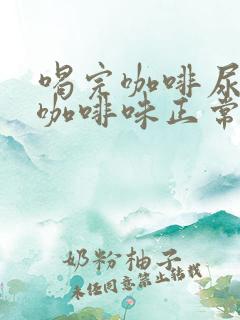 喝完咖啡尿
咖啡味正常
奶粉柚子
未经同意禁止转载